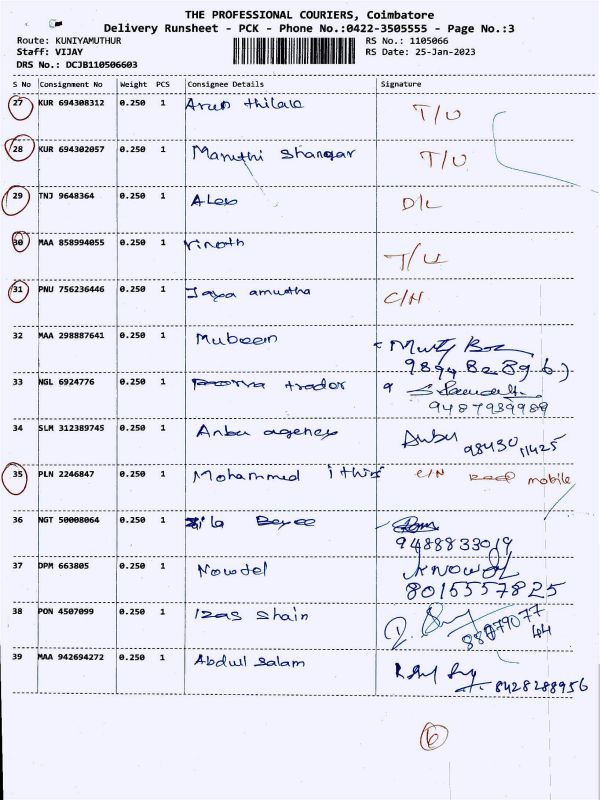 THE PROFESSIONAL COURIERS, Coimbatore
Delivery Runsheet - PCK - Phone No.:0422-3505555 - Page No.:3
Route: KUNIYAMUTHUR RS No.: 1105066
Staff: VIJAY RS Date: 25-Jan-2023
DRS No.: DCJB110506603
S No Consignment No Weight PCS Consignee Details Signature
27 KUR 694308312 0.250 1 Arun thilak T/U
28 KUR 694302057 0.250 1 Maruthi Shangar T/U
29 TNJ 9648364 0.250 1 Alex D/L
30 MAA 858994055 0.250 1 Vinoth T/U
31 PNU 756236446 0.250 1 Jaya amutha C/N
32 MAA 298887641 0.250 1 Mubeen
33 NGL 6924776 0.250 1 trador
9487939989
34 SLM 312389745 0.250 1 Anbu agency Anbu 98430 11425
35 PLN 2246847 0.250 1 Mohammed C/N mobile
36 NGT 50008064 0.250 1
9488833019
37 DPM 663805 0.250 1 Nowtel
8015557825
38 PON 4507099 0.250 1 Izas Shain
39 MAA 942694272 0.250 1 Abdul Salam
8428288956
6